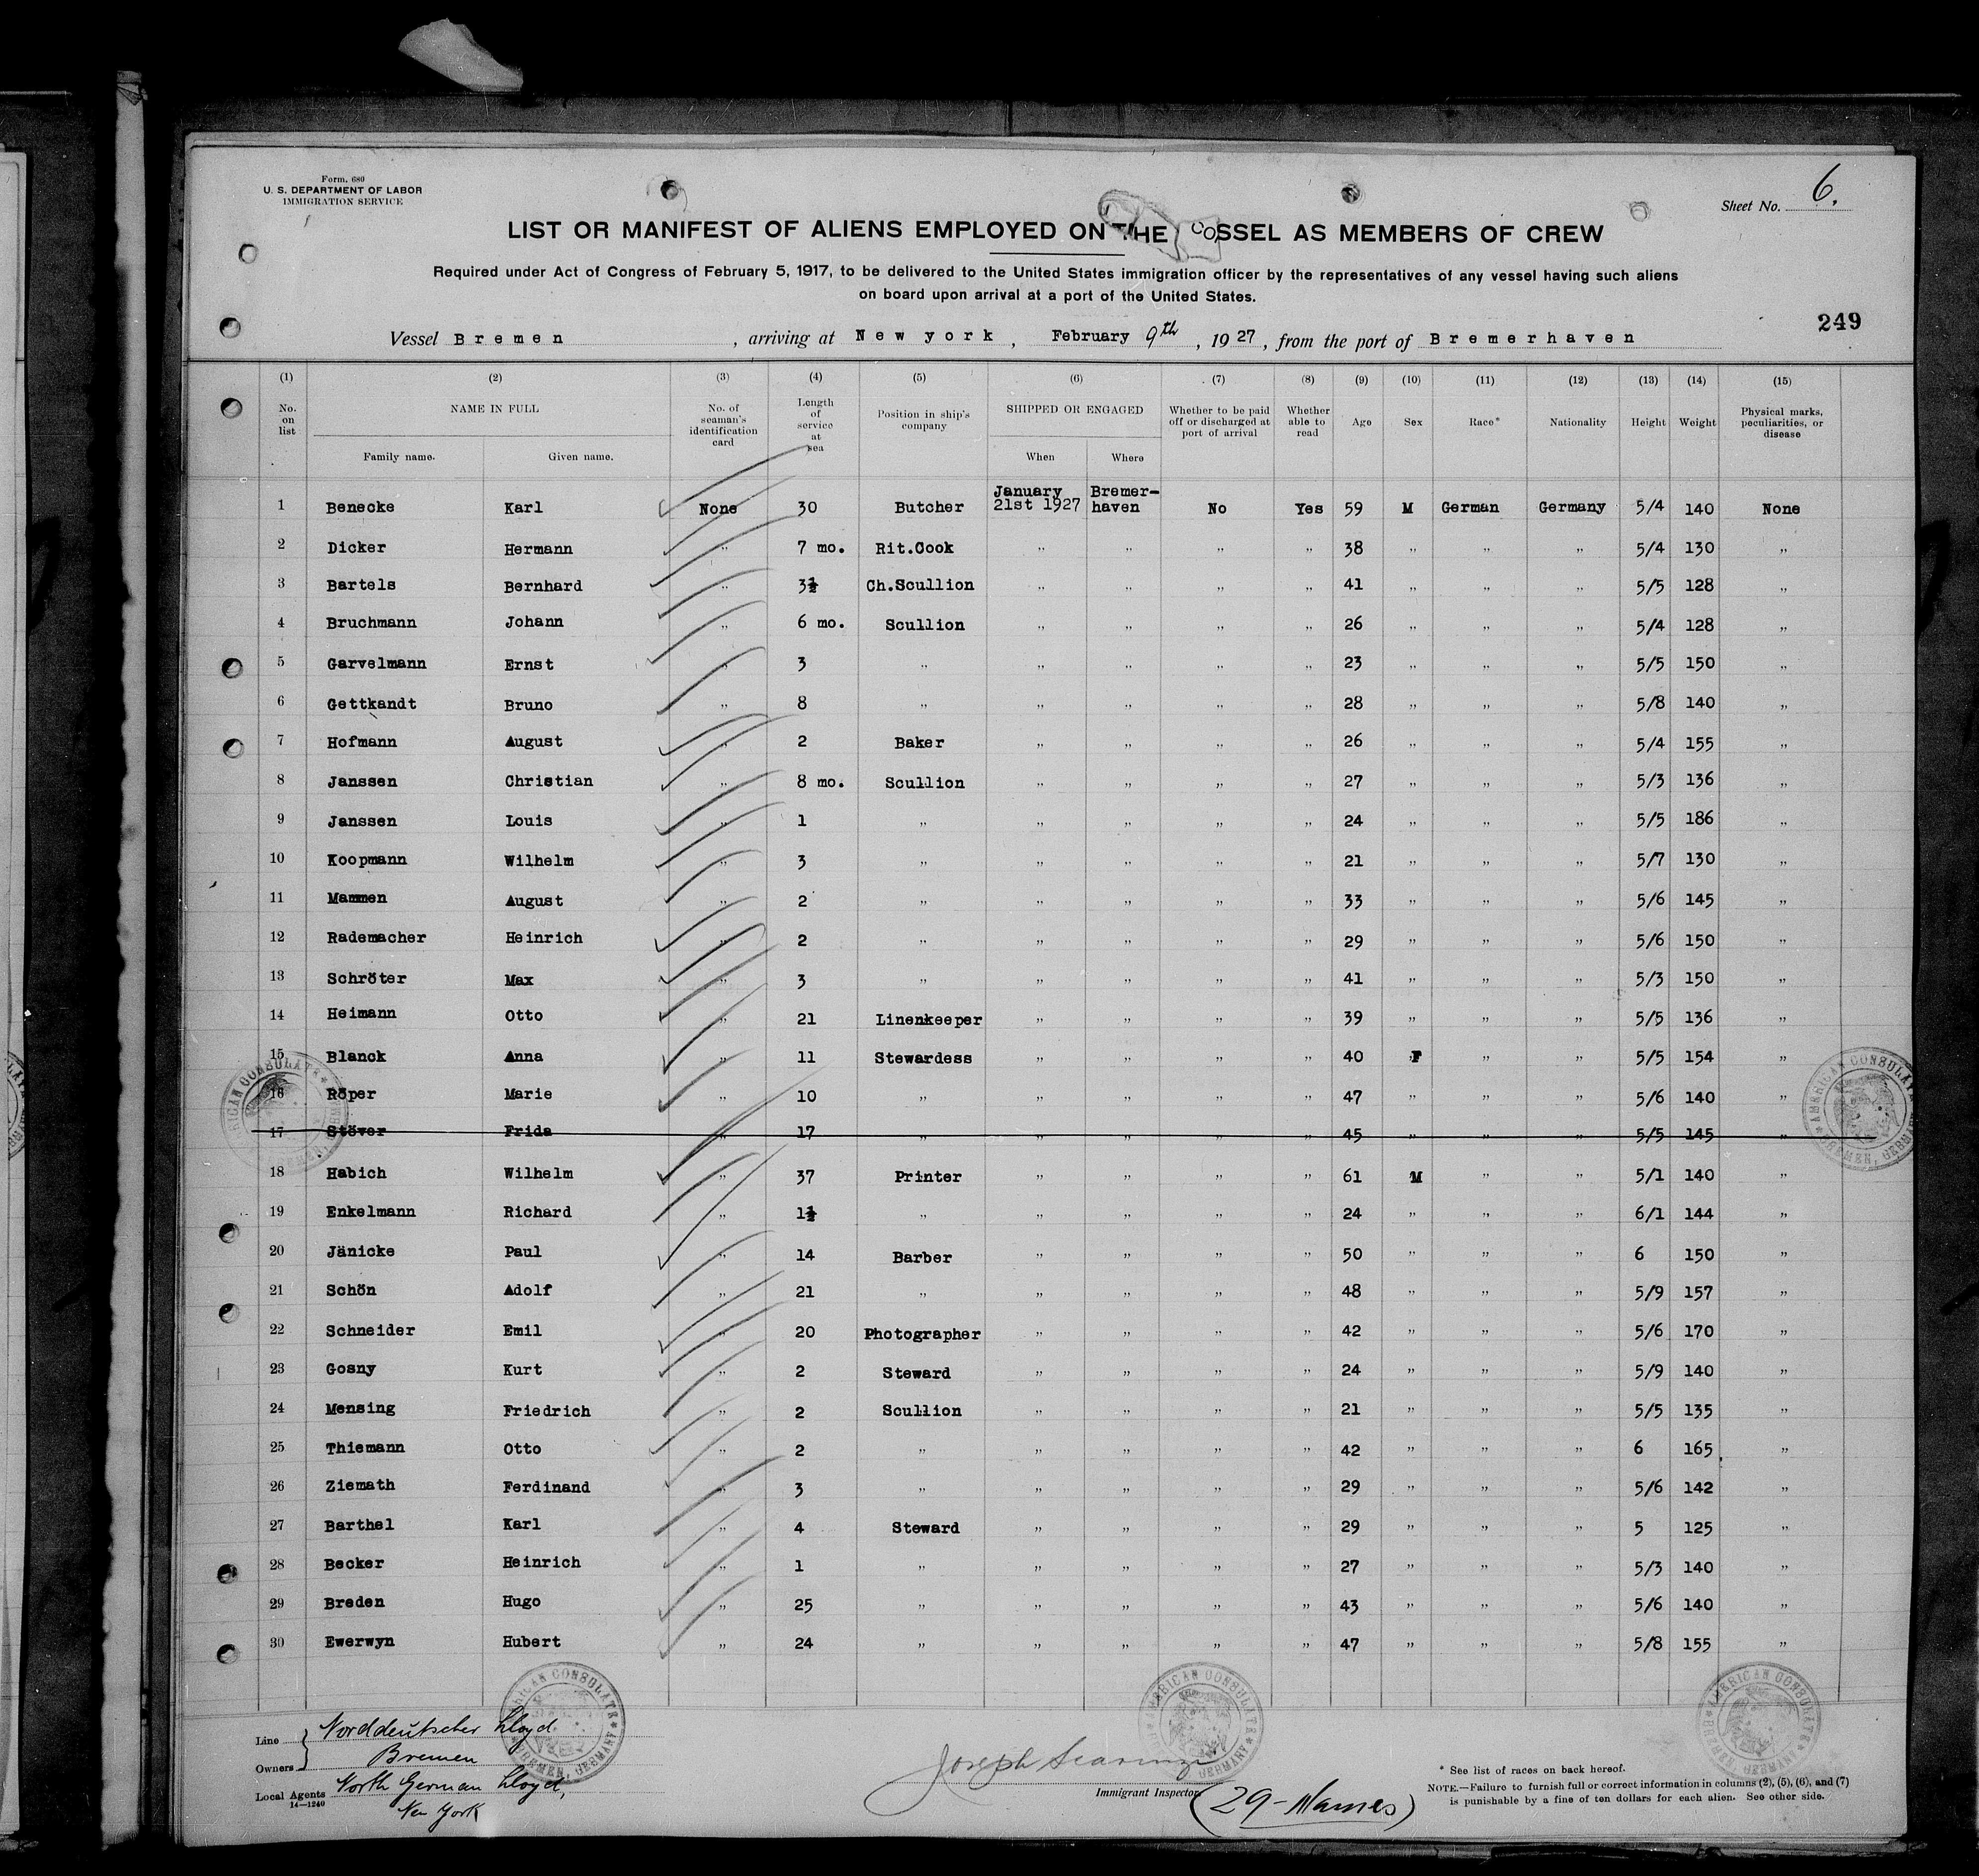 Form 680
U. S. DEPARTMENT OF LABOR
IMMIGRATION SERVICE
Sheet No. 6.
LIST OR MANIFEST OF ALIENS EMPLOYED ON THE SSEL AS MEMBERS OF CREW
Required under Act of Congress of February 5, 1917, to be delivered to the United States immigration officer by the representatives of any vessel having such aliens
on board upon arrival at a port of the United States.
249
Vessel Bremen, arriving at New york, February 9th, 1927, from the port of Bremerhaven
(1) (2) (3) (4) (5) (6) (7) (8) (9) (10) (11) (12) (13) (14) (15)
No. on list NAME IN FULL No. of seaman's identification card Length of service at sea Position in ship's company SHIPPED OR ENGAGED Whether to be paid off or discharged at port of arrival Whether able to read Age Sex Race* Nationality Height Weight Physical marks, peculiarities, or disease
Family name. Given name. When Where
1 Benecke Karl None 30 Butcher January 21st 1927 Bremer-haven No Yes 59 M German Germany 5/4 140 None
2 Dicker Hermann " 7 mo. Rit.Cook " " " " 38 " " " 5/4 130 "
3 Bartels Bernhard " 3½ Ch.Scullion " " " " 41 " " " 5/5 128 "
4 Bruchmann Johann " 6 mo. Scullion " " " " 26 " " " 5/4 128 "
5 Garvelmann Ernst " 3 " " " " " 23 " " " 5/5 150 "
6 Gettkandt Bruno " 8 " " " " " 28 " " " 5/8 140 "
7 Hofmann August " 2 Baker " " " " 26 " " " 5/4 155 "
8 Janssen Christian " 8 mo. Scullion " " " " 27 " " " 5/3 136 "
9 Janssen Louis " 1 " " " " " 24 " " " 5/5 186 "
10 Koopmann Wilhelm " 3 " " " " " 21 " " " 5/7 130 "
11 Mammen August " 2 " " " " " 33 " " " 5/6 145 "
12 Rademacher Heinrich " 2 " " " " " 29 " " " 5/6 150 "
13 Schröter Max " 3 " " " " " 41 " " " 5/3 150 "
14 Heimann Otto " 21 Linenkeeper " " " " 39 " " " 5/5 136 "
15 Blanck Anna " 11 Stewardess " " " " 40 F " " 5/5 154 "
16 Röper Marie " 10 " " " " " 47 " " " 5/6 140 "
17 Stöver Frida " 17 " " " " " 45 " " " 5/5 145 "
18 Habich Wilhelm " 37 Printer " " " " 61 M " " 5/1 140 "
19 Enkelmann Richard " 1½ " " " " " 24 " " " 6/1 144 "
20 Jänicke Paul " 14 Barber " " " " 50 " " " 6 150 "
21 Schön Adolf " 21 " " " " " 48 " " " 5/9 157 "
22 Schneider Emil " 20 Photographer " " " " 42 " " " 5/6 170 "
23 Gosny Kurt " 2 Steward " " " " 24 " " " 5/9 140 "
24 Mensing Friedrich " 2 Scullion " " " " 21 " " " 5/5 135 "
25 Thiemann Otto " 2 " " " " " 42 " " " 6 165 "
26 Ziemath Ferdinand " 3 " " " " " 29 " " " 5/6 142 "
27 Barthel Karl " 4 Steward " " " " 29 " " " 5 125 "
28 Becker Heinrich " 1 " " " " " 27 " " " 5/3 140 "
29 Breden Hugo " 25 " " " " " 43 " " " 5/6 140 "
30 Ewerwyn Hubert " 24 " " " " " 47 " " " 5/8 155 "
AMERICAN CONSULATE BREMEN, GERMANY
Line Norddeutscher Lloyd
Owners Bremen
Local Agents North German Lloyd,
14—1240 New York
Joseph
Immigrant Inspector
(29-Names)
* See list of races on back hereof.
NOTE.—Failure to furnish full or correct information in columns (2), (5), (6), and (7)
is punishable by a fine of ten dollars for each alien. See other side.